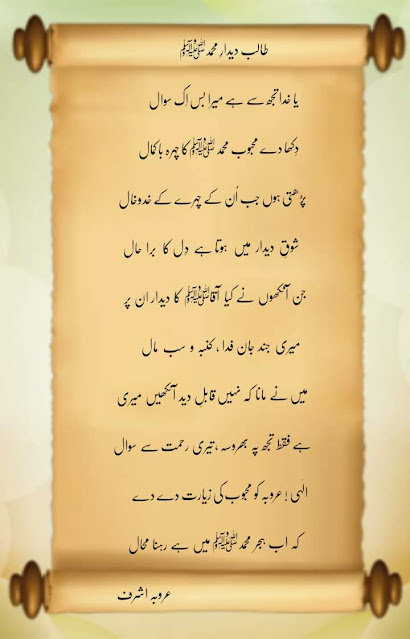 طالب دیدارِ محمد ﷺ
یا خدا تجھ سے ہے میرا بس اِک سوال
دِکھا دے محبوب محمد ﷺ کا چہرہ باکمال
پڑھتی ہوں جب اُن کے چہرے کے خدوخال
شوقِ دیدار میں ہوتا ہے دِل کا برا حال
جن آنکھوں نے کیا آقاﷺ کا دیدار ان پر
میری جند جان فدا ، کنبہ و سب مال
میں نے مانا کہ نہیں قابلِ دید آنکھیں میری
ہے فقط تجھ پہ بھروسہ ، تیری رحمت سے سوال
الٰہی ! عروبہ کو محبوب کی زیارت دے دے
کہ اب ہجرِ محمدﷺ میں ہے رہنا محال
عروبہ اشرف